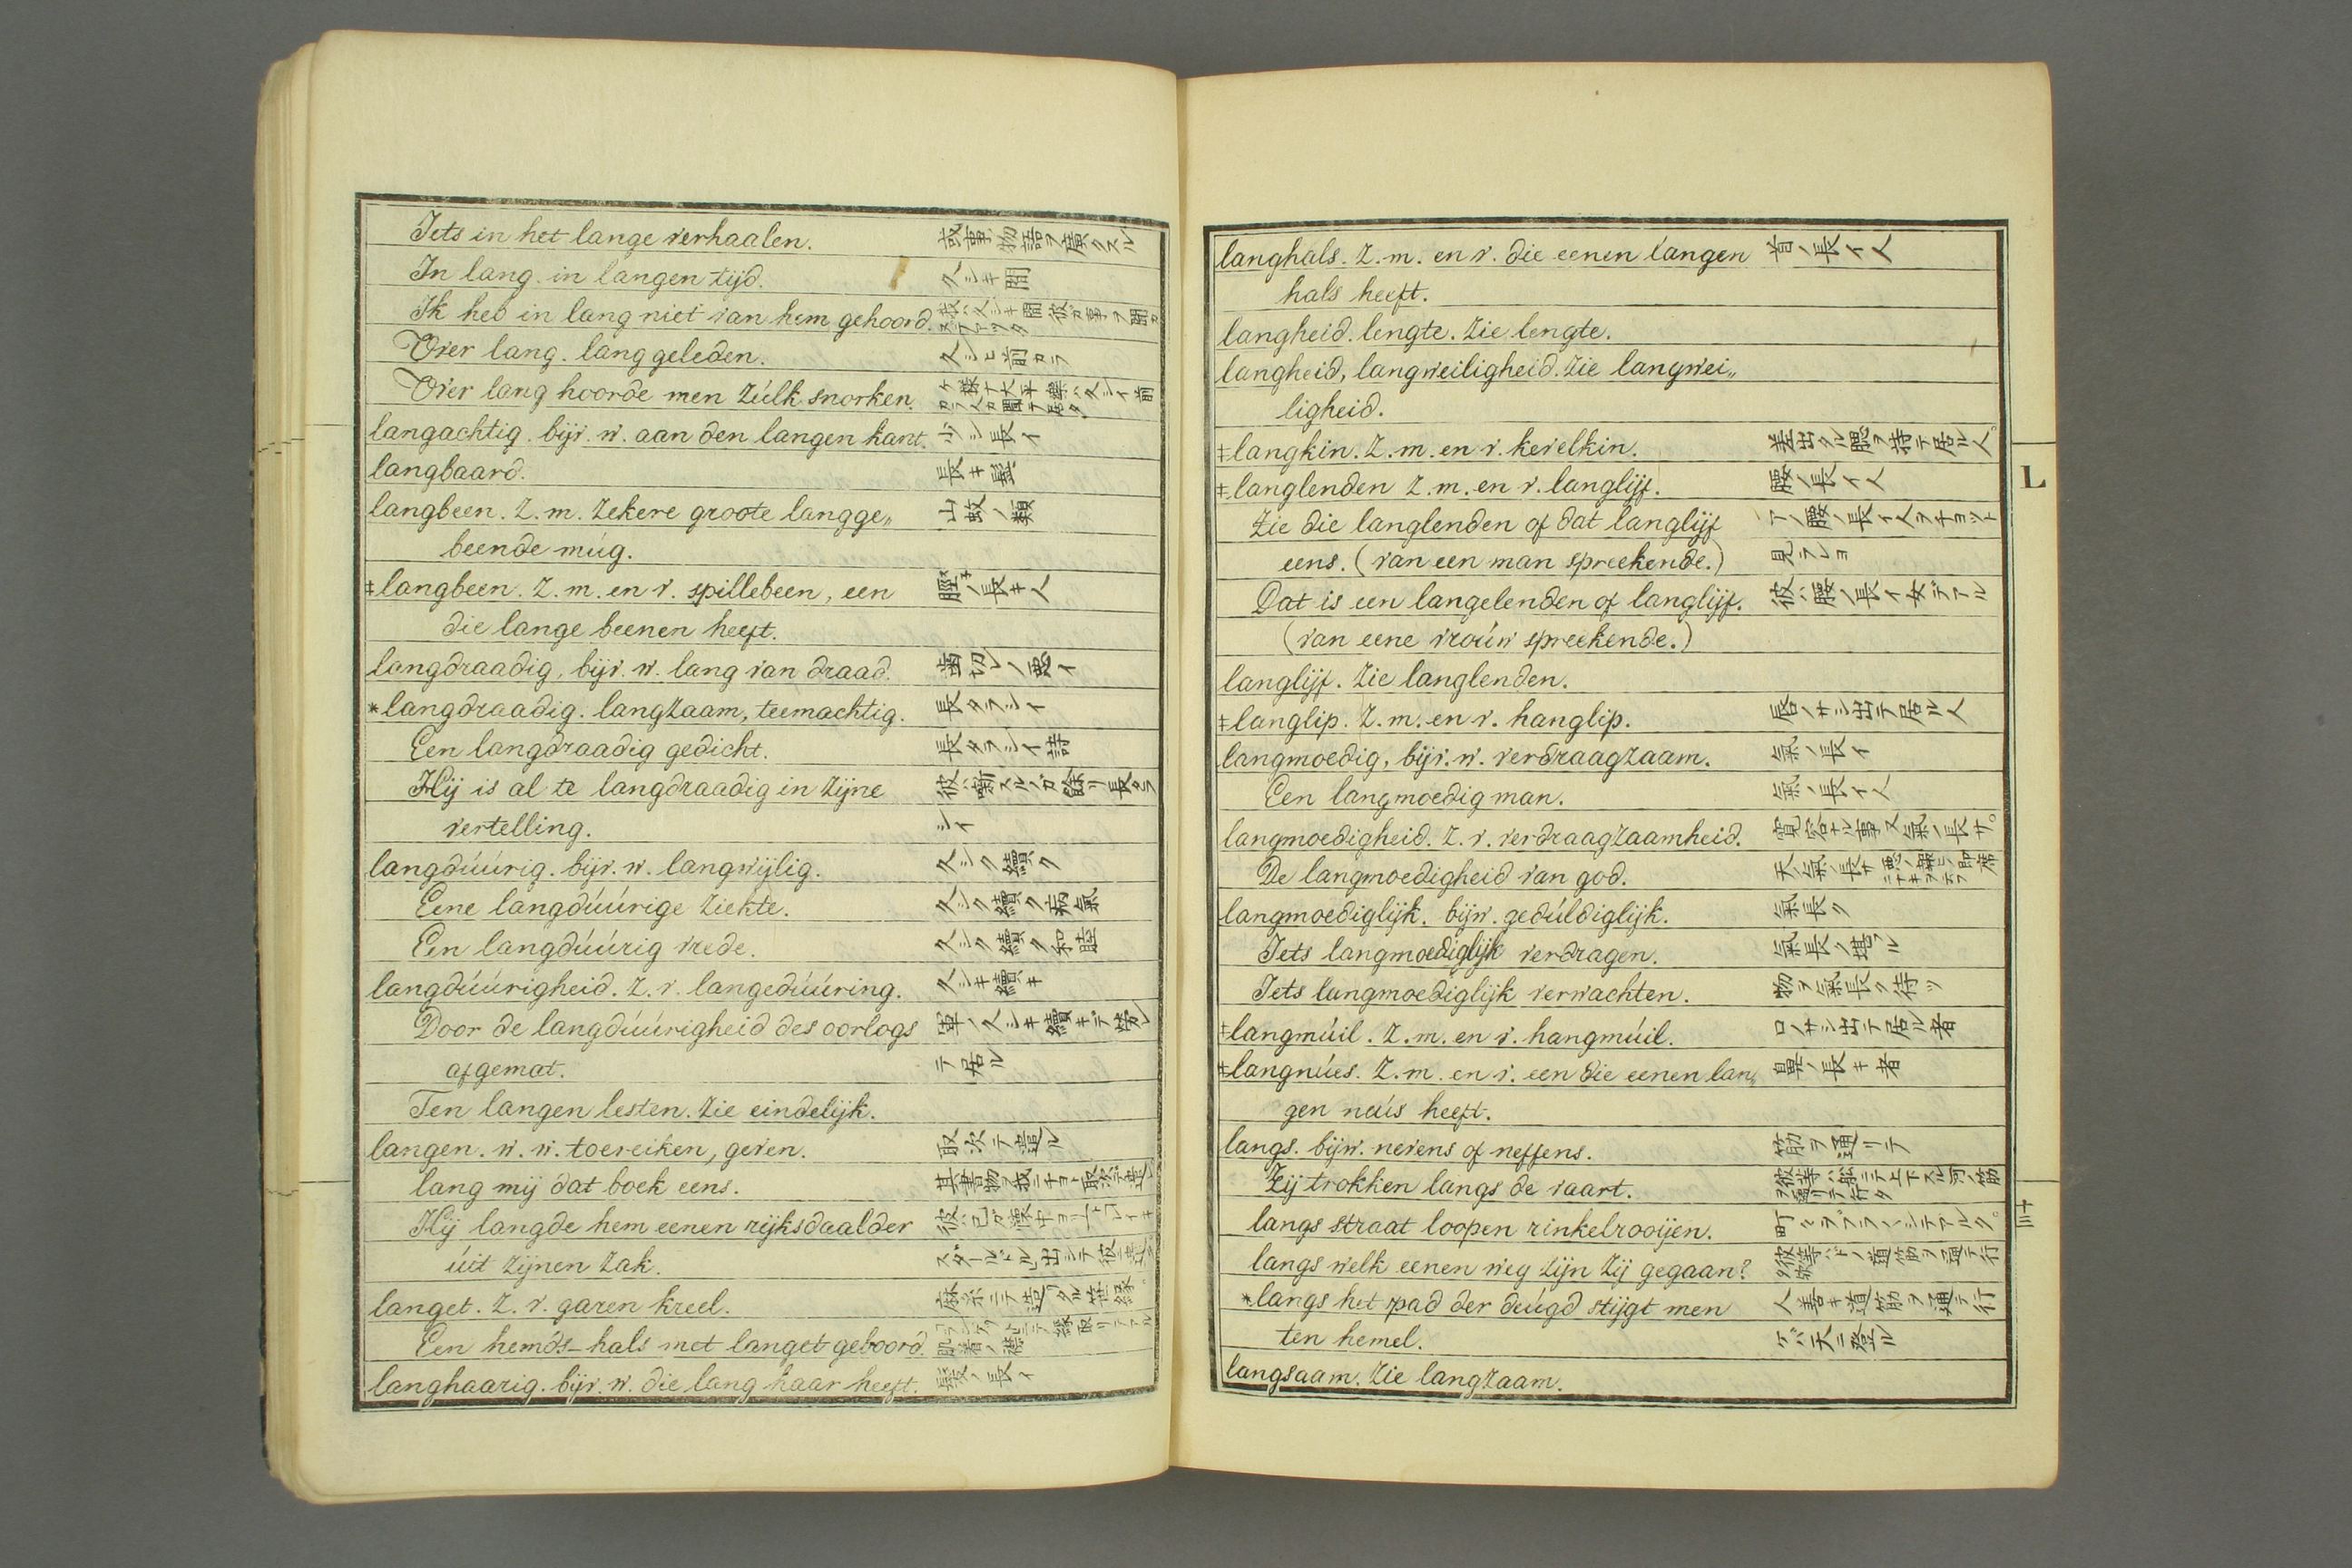 Iets in het lange verhaalen. 或事ノ物語ヲ廣クスル
In lang. in langen tijd. 久シキ間
Ik heb in lang niet van hem gehoord. 我ハ久シキ間彼ガ事ヲ聞カヌテアツタ
Over lang. lang geleden. 久シヒ前カラ
Over lang hoorde men zúlk snorken. 久シイ前カラ人ガ聞テ居タ
langachtig. bijv. w. aan den langen kant. 少シ長イ
langbaard. 長キ髭
langbeen. z. m. zekere groote langge„ 山蚊ノ類
beende múg.
‡langbeen. z. m. en v. spillebeen, een 脛ノ長キ人
die lange beenen heeft.
langdraadig, bijv. w. lang van draad. 歯切レノ悪イ
*langdraadig. langzaam, teemachtig. 長タラシイ
Een langdraadig gedicht. 長タラシイ詩
Hij is al te langdraadig in zijne 彼ハ噺スルガ餘リ長タラ
vertelling. シイ
langdúúrig. bijv. w. langwijlig. 久シク續ク
Eene langdúúrige ziekte. 久シク續ク病氣
Een langdúúrig vrede. 久シク續ク和睦
langdúúrigheid. z. v. langedúúring. 久シキ續キ
Door de langdúúrigheid des oorlogs 軍ノ久シキ續キデ労レ
afgemat. テ居ル
Ten langen lesten. zie eindelijk.
langen. w. w. toereiken, geven. 取次テ遣ル
lang mij dat boek eens. 其書物ヲ我ニチヨト取次テ遣レ
Hij langde hem eenen rijksdaalder 彼ハ己ガ
úit zijnen zak. 出シテ彼ニ遣タ
langet. z. v. garen kreel. 麻糸ニテ造リタル笹縁。
Een hemds-hals met langet geboord. 縁取リテアル肌着ノ襟
langhaarig. bijv. w. die lang haar heeft. 髪ノ長イ
langhals. z. m. en v. die eenen langen 首ノ長イ人
hals heeft.
langheid. lengte. zie lengte.
langheid, langweiligheid. zie langwei„
ligheid.
‡langkin. z. m. en v. kevelkin. 差出タル腮ヲ持テ居ル人。
‡langlenden z. m. en v. langlijf. 腰ノ長イ人
L
Zie die langlenden of dat langlijf アノ腰ノ長イ人ヲチヨット
eens. (van een man spreekende.) 見ラレヨ
Dat is een langelenden of langlijf. 彼ハ腰ノ長イ女デアル
(van eene vroúw spreekende.)
langlijf. zie langlenden.
‡langlip. z. m. en v. hanglip. 唇ノサシ出テ居ル人
langmoedig, bijv. w. verdraagzaam. 氣ノ長イ
Een langmoedig man. 氣ノ長イ人
langmoedigheid. z. v. verdraagzaamheid. 寛容ナル事又氣ノ長サ。
De langmoedigheid van god. 天ノ氣ノ長サ
langmoediglijk. bijw. gedúldiglijk. 氣長ク
Iets langmoediglijk verdragen. 氣長ク堪ル
Iets langmoediglijk verwachten. 物ヲ氣長ク待ツ
‡langmúil. z. m. en v. hangmúil. 口ノサシ出テ居ル者
‡langnúes. z. m. en v. een die eenen lan„ 鼻ノ長キ者
gen neús heeft.
langs. bijw. nevens of neffens. 筋ヲ通リテ
Zij trokken langs de vaart. 彼等ハ船ニテ上下スル河ノ筋ヲ通リテ行タ
langs straat loopen rinkelrooijen. 町々ヲブラ〳〵シテアルク。
十三
langs welk eenen weg zijn zij gegaan? 彼等ハドノ道筋ヲ通テ行タ
*langs het pad der deúgd stijgt men 人善キ道筋ヲ通テ行
ten hemel. ゲバ天ニ登ル
langsaam. zie langzaam.